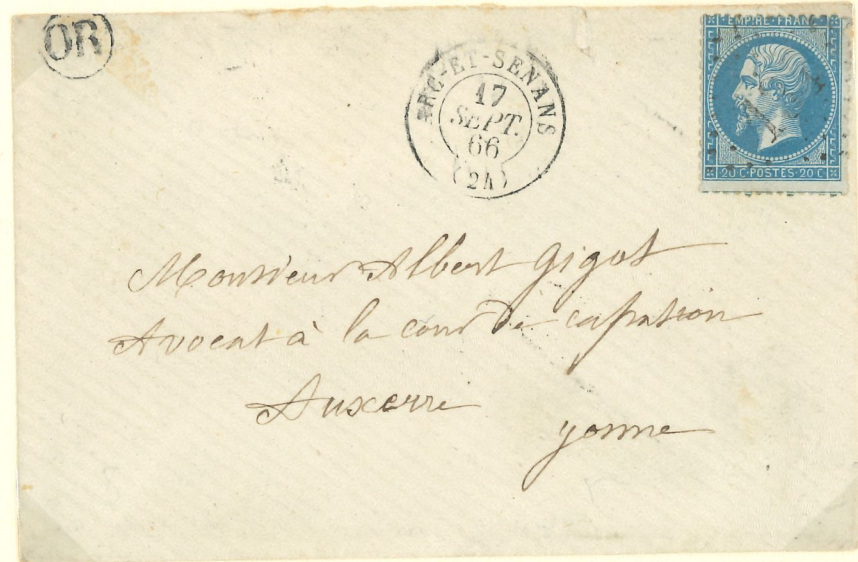 OR
ARC-ET-SENANS
17
SEPT.
66
(24)
EMPIRE FRANC
20 C POSTES 20 C
Monsieur Albert Gigot
Avocat à la cour de cassation
Auxerre
yonne